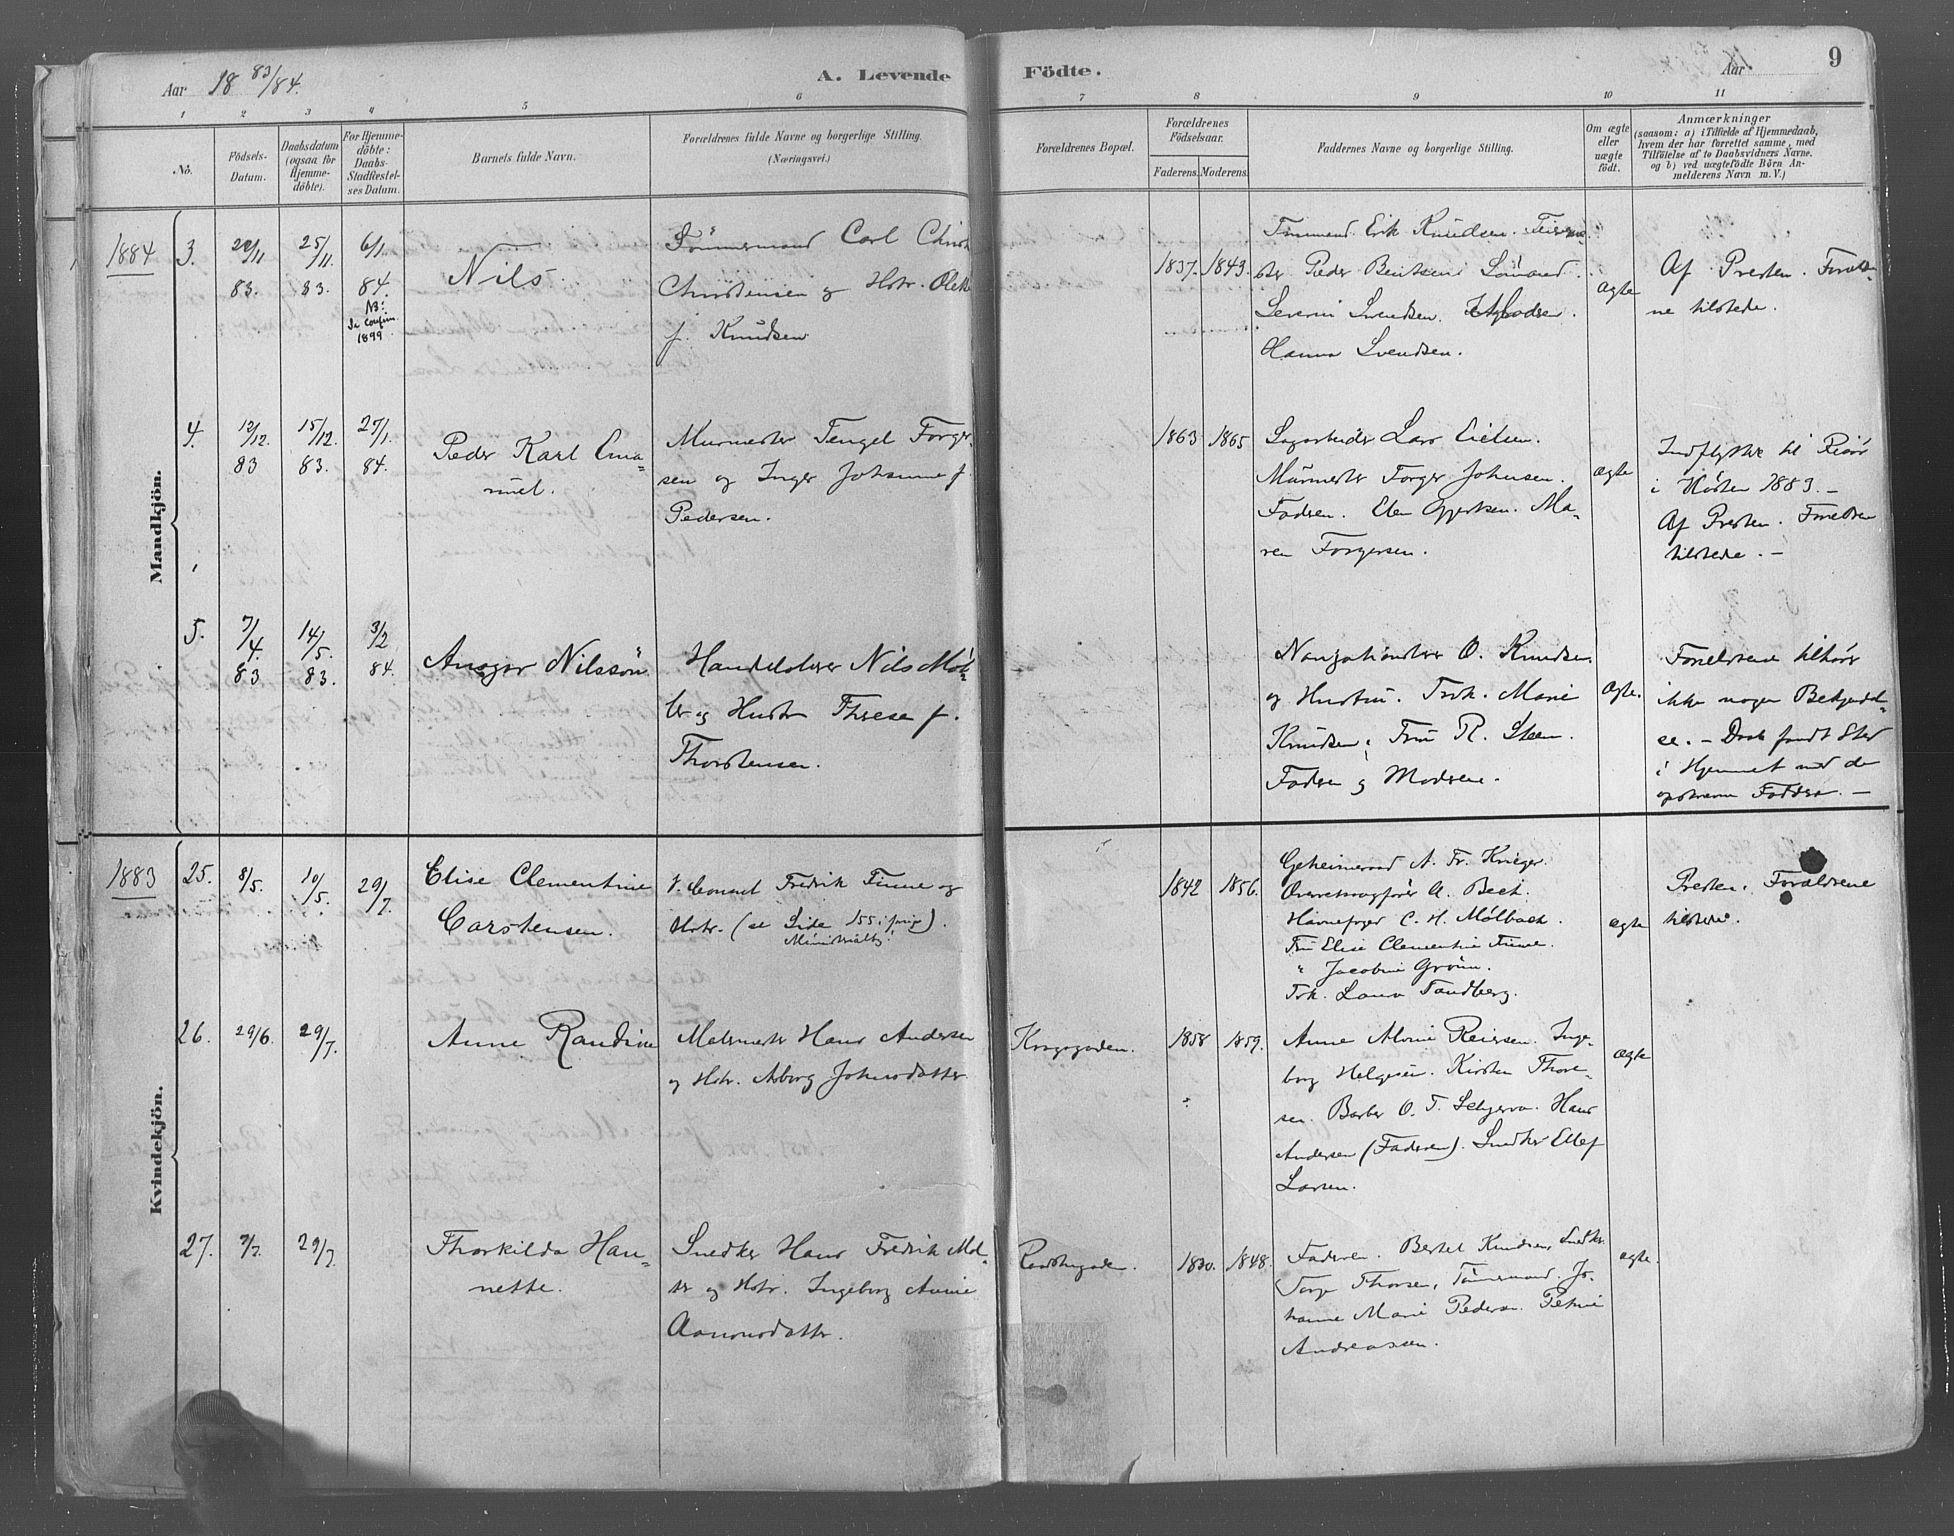 Aar 18 83/84.
A. Levende Födte.
Aar
9
1 2 3 4 5 6 7 8 9 10 11
No.
Födsels-
Datum.
Daabsdatum
(ogsaa for
Hjemme-
döbte).
For Hjemme-
döbte:
Daabs-
Stadfæstel-
ses Datum.
Barnets fulde Navn.
Forældrenes fulde Navne og borgerlige Stilling.
(Næringsvei.)
Forældrenes Bopæl.
Forældrenes
Födselsaar.
Faderens. Moderens.
Faddernes Navne og borgerlige Stilling.
Om ægte
eller
uægte
födt.
Anmærkninger
(saasom: a) i Tilfælde af Hjemmedaab,
hvem der har forrettet samme, med
Tilföielse af to Daabsvidners Navne.
og b) ved uægtefödte Börn An-
melderens Navn m. V.)
Mandkjön.
1884
3.
22/11
83.
25/11.
83.
6/1.
84.
NB:
se Confirm.
1899
Nils.
Tömmermand Carl Christ
Christensen og Hstr. Olek
f. Knudsen
1837. 1843.
Tømmermd. Erik Knudsen.
Peder Bentsen Sömand.
Severin Svendsen.
Hanna Svendsen.
ægte
Af Presten. Foreldre-
ne tilstede.
4.
12/12.
83
15/12.
83.
27/1.
84.
Peder Karl Ema-
nuel.
Murmester Tengel Torger-
sen og Inger Johanne f.
Pedersen.
1863 1865
Sagarbeider Lars Eielsen.
Murmester Torger Johnsen.
Fadren. Elen Gjertsen. Ma-
ren Torgersen.
ægte
Indflyttet til Risör
i Hösten 1883. -
Af Presten. Foreldrene
tilstede. -
5.
7/4.
83
14/5.
83.
3/2
84.
Ansgar Nilssön
Handelslærer Nils Möl-
ler og Hustr Threse f.
Thorstensen.
Navigationslærer O. Knudsen
og Hustru. Frøk. Marie
Knudsen, Fru R. Steen.
Fadren og Modren.
ægte.
Foreldrene tilhörer
ikke nogen Bekjendel-
se. - Daab fandt Sted
i Hjemmet med de
opskrevne Faddre. -
Kvindekjön.
1883
25.
8/5.
10/5.
29/7.
Elise Clementine
Carstensen.
V. Consul Fredrik Finne og
Hstr. (se Side 155 i forrige).
Ministerialbg.
1842 1856.
Geheimeraad A. Fr. Krieger.
Overretssagförer A. Beck.
Havnefoged C. H. Mølbach.
Fru Elise Clementine Finne.
" Jacobine Grönn.
Frk. Laura Tandberg.
ægte
Presten. Forældrene
tilstede.
26.
29/6.
29/7.
Anne Randine
Malermester Hans Andersen
og Hstr. Asborg Johnsdatter
Kragsgaden.
1858 1859.
Anne Alvine Reiersen. Inge-
borg Helgesen. Kirsten Thore-
sen. Barber O. T. Schjerva. Hans
Andersen (Faderen). Snedker Ellef
Larsen.
ægte
27.
9/7.
29/7.
Thorkilda Han-
nette.
Snedker Hans Fredrik Mol-
og Hstr. Ingeborg Annie
Aanonsdatter.
Raadhusgaden.
1830. 1848.
Faderen. Bertel Knudsen, Snedker.
Torge Thorsen, Tömmermand. Jo-
hanne Marie Pedersen. Petrine
Andreassen.
ægte.